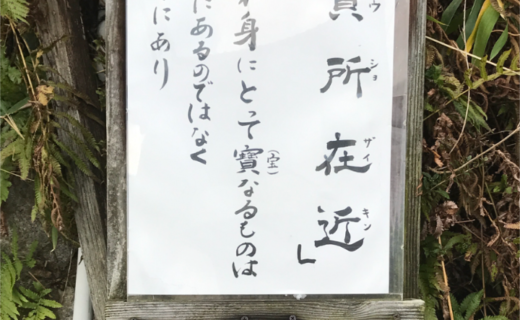 寶所在近」
身にとって寶(宝)なるものは
にあるのではなく
にあり